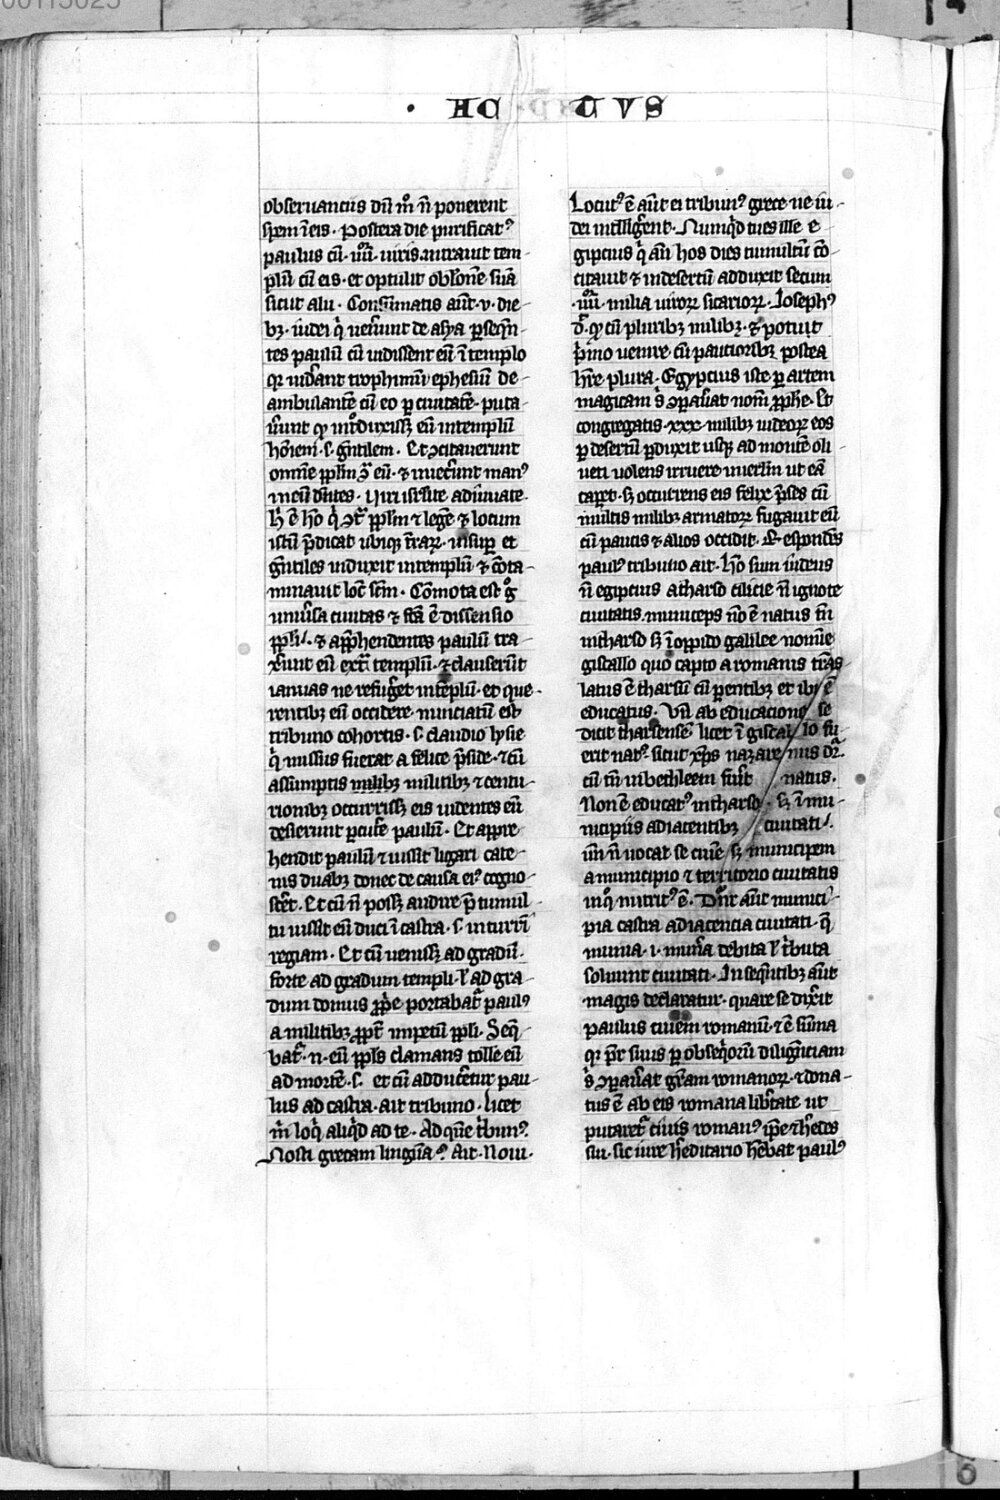 00115025
· AC TVS
obseruantius dn̄ m̊ n̄ ponerent
spem ī eis · Postera die purificatꝰ
paulus cū · iiii · uiris intrauit tem-
plū cū eis · et optulit oblōnē suā
sicut alii · Consūmatis aūt · v · die-
bꝫ · iudei q̇ uen̄unt de asya ꝑseqn̄-
tes paulū cū uidissent eū ī templo
qꝛ uid̄ant trophimū ephesiū de-
ambulantē cū eo ꝑ ciuitatē · puta-
u̇unt qp̱ īt̊duxissꝫ eū in templū
hōiem · s · gn̄tilem · Et ꝯcitauerunt
omnē pp̄lm ꝯ̄ eū · ⁊ iniec̄unt manꝰ
in eū dn̄tes · Viri isrl̄ite adiuuate ·
h̄ ē hō q̇ ꝯt̄ pp̄lm ⁊ legē ⁊ locum
istū p̄dicat ubiqꝫ t̄raꝝ · insuꝑ et
gn̄tiles induxit in templū ⁊ cōta-
minauit locū sc̄m · Cōmota est g̊
uniu̇sa ciuitas ⁊ fc̄a ē dissensio
pp̄li · ⁊ app̄hendentes paulū tra-
x̄unt eū ext̄ templū · ⁊ clauserūt
ianuas ne refuḡet in tēplū · et que-
rentibꝫ eū occidere · nunciatū est
tribuno cohortis · s · claudio lysie
q̇ missus fuerat a felice p̄side · ⁊ cū
assūmptis militibꝫ ⁊ centu-
rionibꝫ occurrissꝫ eis uidentes eū
desierunt ꝑcut̄e paulū · Et appre-
hendit paulū ⁊ iussit ligari cate-
nis duabꝫ donec de causa eiꝰ cogno-
sc̄et · Et cū n̄ possꝫ audire p̄ tumul-
tu iussit eū duci ī castra · s · in turrī
regiam · Et cū uenissꝫ ad gradū ·
forte ad gradum templi · ł ad gra-
dum domus ꝓp̄e portabat̄ paulꝰ
a militibꝫ ꝓpt̄ impetū pp̄li · Seq̄-
bat̄ · n · eū pp̄ls clamans tolle eū
ad mortē · s · et cū adduc̄etur pau-
lus ad castra · ait tribuno · licet
m̄ loq̇ aliq̇d ad te · Ad quē t̄bunꝰ ·
Nosti grecam linguā ? Ait · Noui ·
Locutꝰ ē aūt ei tribunꝰ grece ne iu-
dei intelliḡent · Nunq̇d tu es ille e-
gipcius q̇ an̄ hos dies tumultū cō-
citauit ⁊ in desertū adduxit secum
· iiii · milia uiroꝝ sicarioꝝ · Iosephꝰ
d̄ · qp̱ cū pluribꝫ milibꝫ · ⁊ potuit
p̄mo uenire cū paucioribꝫ postea
hr̄e plura · Egypcius iste ꝑ artem
magicam s̄ ꝯpar̄at nom̄ ꝓphe · Et
congregatis · xxx · milibꝫ iudeoꝝ eos
ꝑ desertū ꝑduxit usqꝫ ad montē oli-
ueti uolens irruere in ierlm̄ ut eā
cap̄et · sꝫ occurrens eis felix p̄ses cū
multis milibꝫ armatoꝝ fugauit eū
cū paucis ⁊ alios occidit · Respondēs
paulꝰ tribuno ait · Hō sum iudeus
n̄ egipcius a tharso cilicie n̄ ignote
ciuitatis municeps nō ē natus tn̄
in tharso sꝫ ī oppido galilee nomīe
giscallo quo capto a romanis trās-
latus ē tharsū cū parentibꝫ et ibi ē
educatus · Vn̄ ab educacione se
dicit tharsensē licet ī giscallo fu-
erit natꝰ sicut xp̄s nazarenus dr̄ ·
cū tn̄ in bethleem fu̇it natus ·
Non ē educatꝰ in tharso · sꝫ ī mu-
nicipiis adiacentibꝫ ciuitati ·
un̄ n̄ uocat se ciuē sꝫ municipem
a municipio ⁊ territorio ciuitatis
in q̊ nutritꝰ ē · Dn̄r aūt munici-
pia castra adiacencia ciuitati · q̄
munia · i · mun̄a debita ł t̄buta
soluunt ciuitati · In seqn̄tibꝫ aūt
magis declaratur · quare se dix̄it
paulus ciuem romanū · ⁊ ē sūma
qꝛ pr̄ suus ꝑ obseq̇orū dilign̄ciam
s̄ ꝯpar̄at gr̄am romanoꝝ · ⁊ dona-
tus ē ab eis romana lib̄tate ut
putaret̄ ciuis romanꝰ ip̄e ⁊ h̄edes
sui · sic iure h̄editario hēbat paulꝰ
6